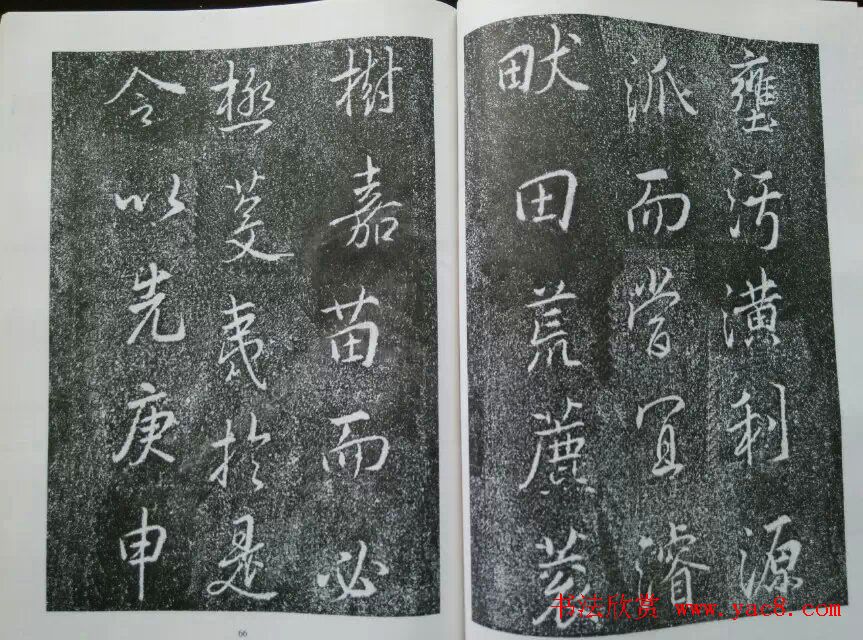 壅汚潢利源
派而宜濬
畎田荒藨蓘
樹嘉苗而必
極芟夷於是
令以先庚申
66
书法欣赏 www.yac8.com